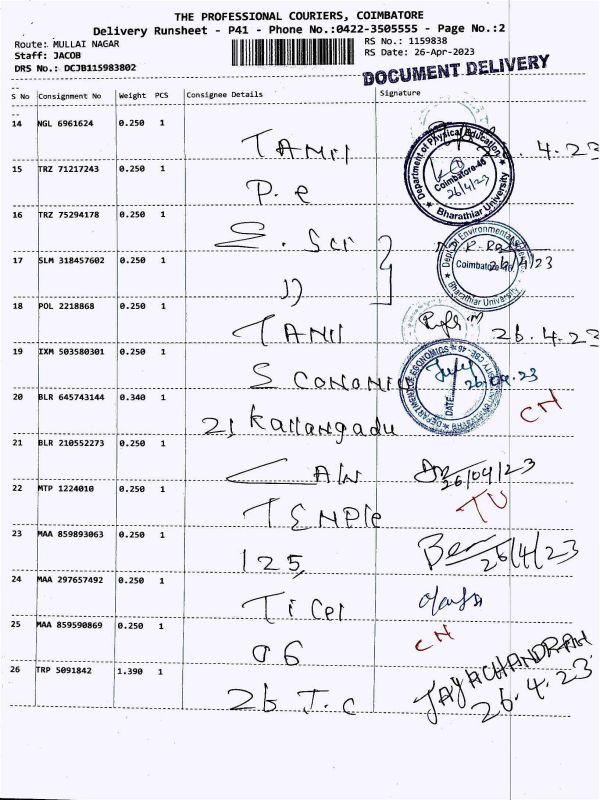 THE PROFESSIONAL COURIERS, COIMBATORE
Delivery Runsheet - P41 - Phone No.:0422-3505555 - Page No.:2
Route: MULLAI NAGAR RS No.: 1159838
Staff: JACOB RS Date: 26-Apr-2023
DRS No.: DCJB115983802
DOCUMENT DELIVERY
S No Consignment No Weight PCS Consignee Details Signature
14 NGL 6961624 0.250 1 TAMIL 4.23
15 TRZ 71217243 0.250 1 P.e Department of Physical Education Coimbatore-46 26/4/23 Bharathiar University
16 TRZ 75294178 0.250 1 E. Sci
17 SLM 318457602 0.250 1 Dept. of Environmental Coimbatore-46 26/4/23 Bharathiar University
18 POL 2218868 0.250 1 TAMIL 26.4.23
19 IXM 503580301 0.250 1 DEPARTMENT OF ECONOMICS DATE 26.04.23
20 BLR 645743144 0.340 1 21 Kallangadu CN
21 BLR 210552273 0.250 1 26/04/23
22 MTP 1224010 0.250 1 TEMPle
23 MAA 859893063 0.250 1 125 26/4/23
24 MAA 297657492 0.250 1
25 MAA 859590869 0.250 1 06 CN
26 TRP 5091842 1.390 1 26 J.C JAYACHANDRAN 26.4.23